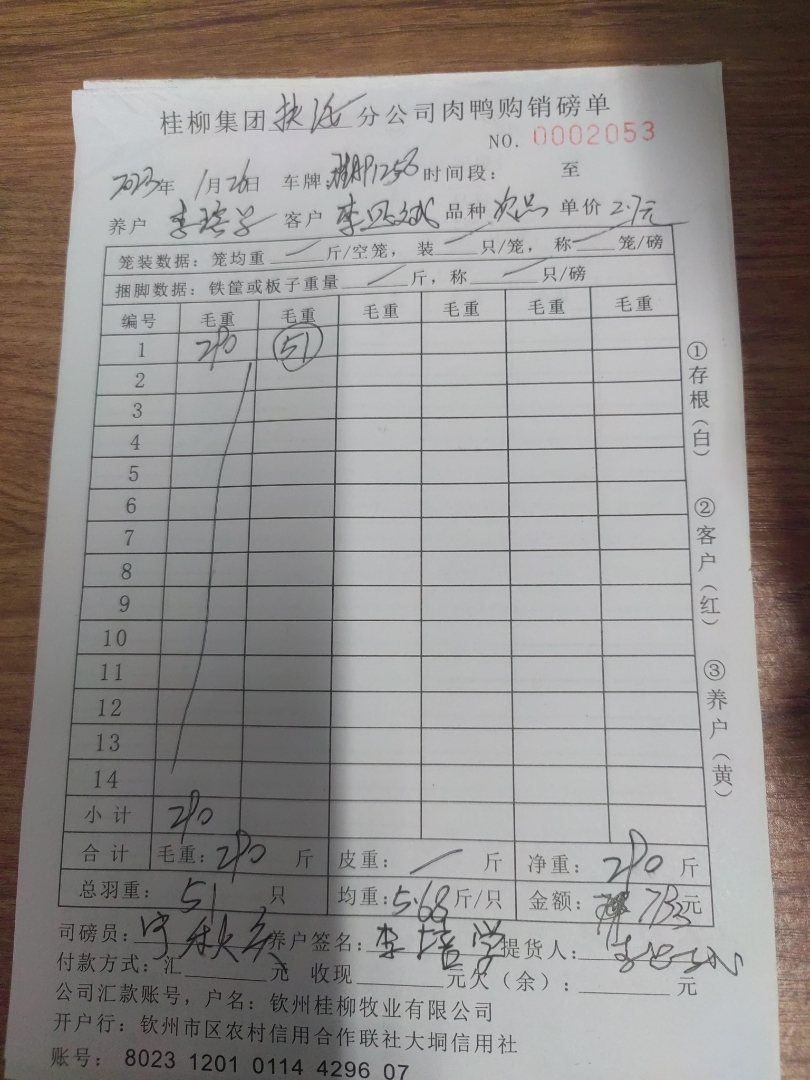 桂柳集团 分公司肉鸭购销磅单
NO. 0002053
2023年 1月26日 车牌: 时间段: 至
养户 李培学 客户 李 品种 次品 单价 2.7元
笼装数据: 笼均重 斤/空笼, 装 只/笼, 称 笼/磅
捆脚数据: 铁筐或板子重量 斤, 称 只/磅
编号 毛重 毛重 毛重 毛重 毛重 毛重
1 290 51
2
3
4
5
6
7
8
9
10
11
12
13
14
小计 290
合计 毛重: 290 斤 皮重: 斤 净重: 290 斤
总羽重: 51 只 均重: 5.68 斤/只 金额: 783元
司磅员: 养户签名: 李培学 提货人:
付款方式: 汇 元 收现 元欠(余): 元
公司汇款账号, 户名: 钦州桂柳牧业有限公司
开户行: 钦州市区农村信用合作联社大垌信用社
账号: 8023 1201 0114 4296 07
①存根(白) ②客户(红) ③养户(黄)